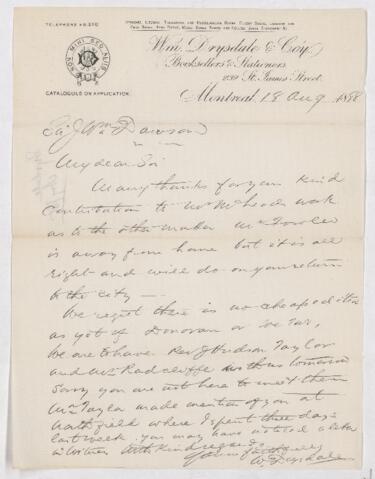 TELEPHONE No. 210
Wm. Drysdale & Co'y
Booksellers & Stationers
232 St. James Street
CATALOGUE ON APPLICATION.
NON MIHI SED ALIIS
Montreal 18 Aug 1888
Sir J Wm Dawson
My dear Sir
Many thanks for your kind
contribution to Mr McLeod's work
as to the other matter Mr
is away from home but it is all
right and will do on your return
to the city —
We regret there is no cheap edition
as yet of Donovan or
We are to have Rev J Hudson Taylor
and Mr Radcliffe with us tomorrow
Sorry you are not here to meet them
Mr Taylor made mention of you at
Northfield where I spent three days
last week. you may have noticed a letter
in Witness With kind regards
Yours faithfully
W Drysdale